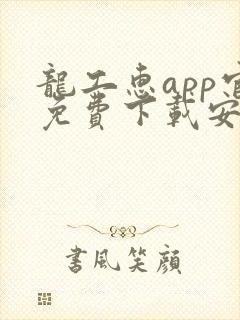 龍工惠app官
免費下載安
書風笑顔